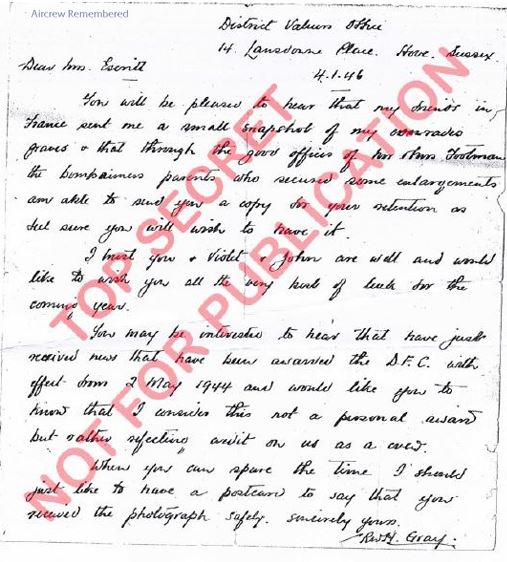 Aircrew Remembered
District Valuers Office
14 Lansdowne Place. Hove. Sussex.
4.1.46
Dear Mrs. Escritt
You will be pleased to hear that my friends in
France sent me a small snapshot of my comrades
graves & that through the good offices of Mr & Mrs Footman
the bombaimers parents who secured some enlargements
am able to send you a copy for your retention as
feel sure you will wish to have it.
I trust you & Violet & John are well and would
like to wish you all the very best of luck for the
coming year.
You may be interested to hear that have just
received news that have been awarded the D.F.C. with
effect from 2 May 1944 and would like you to
know that I consider this not a personal award
but rather reflecting credit on us as a crew.
When you can spare the time I should
just like to have a postcard to say that you
received the photograph safely. sincerely yours.
Gray.
TOP SECRET
NOT FOR PUBLICATION